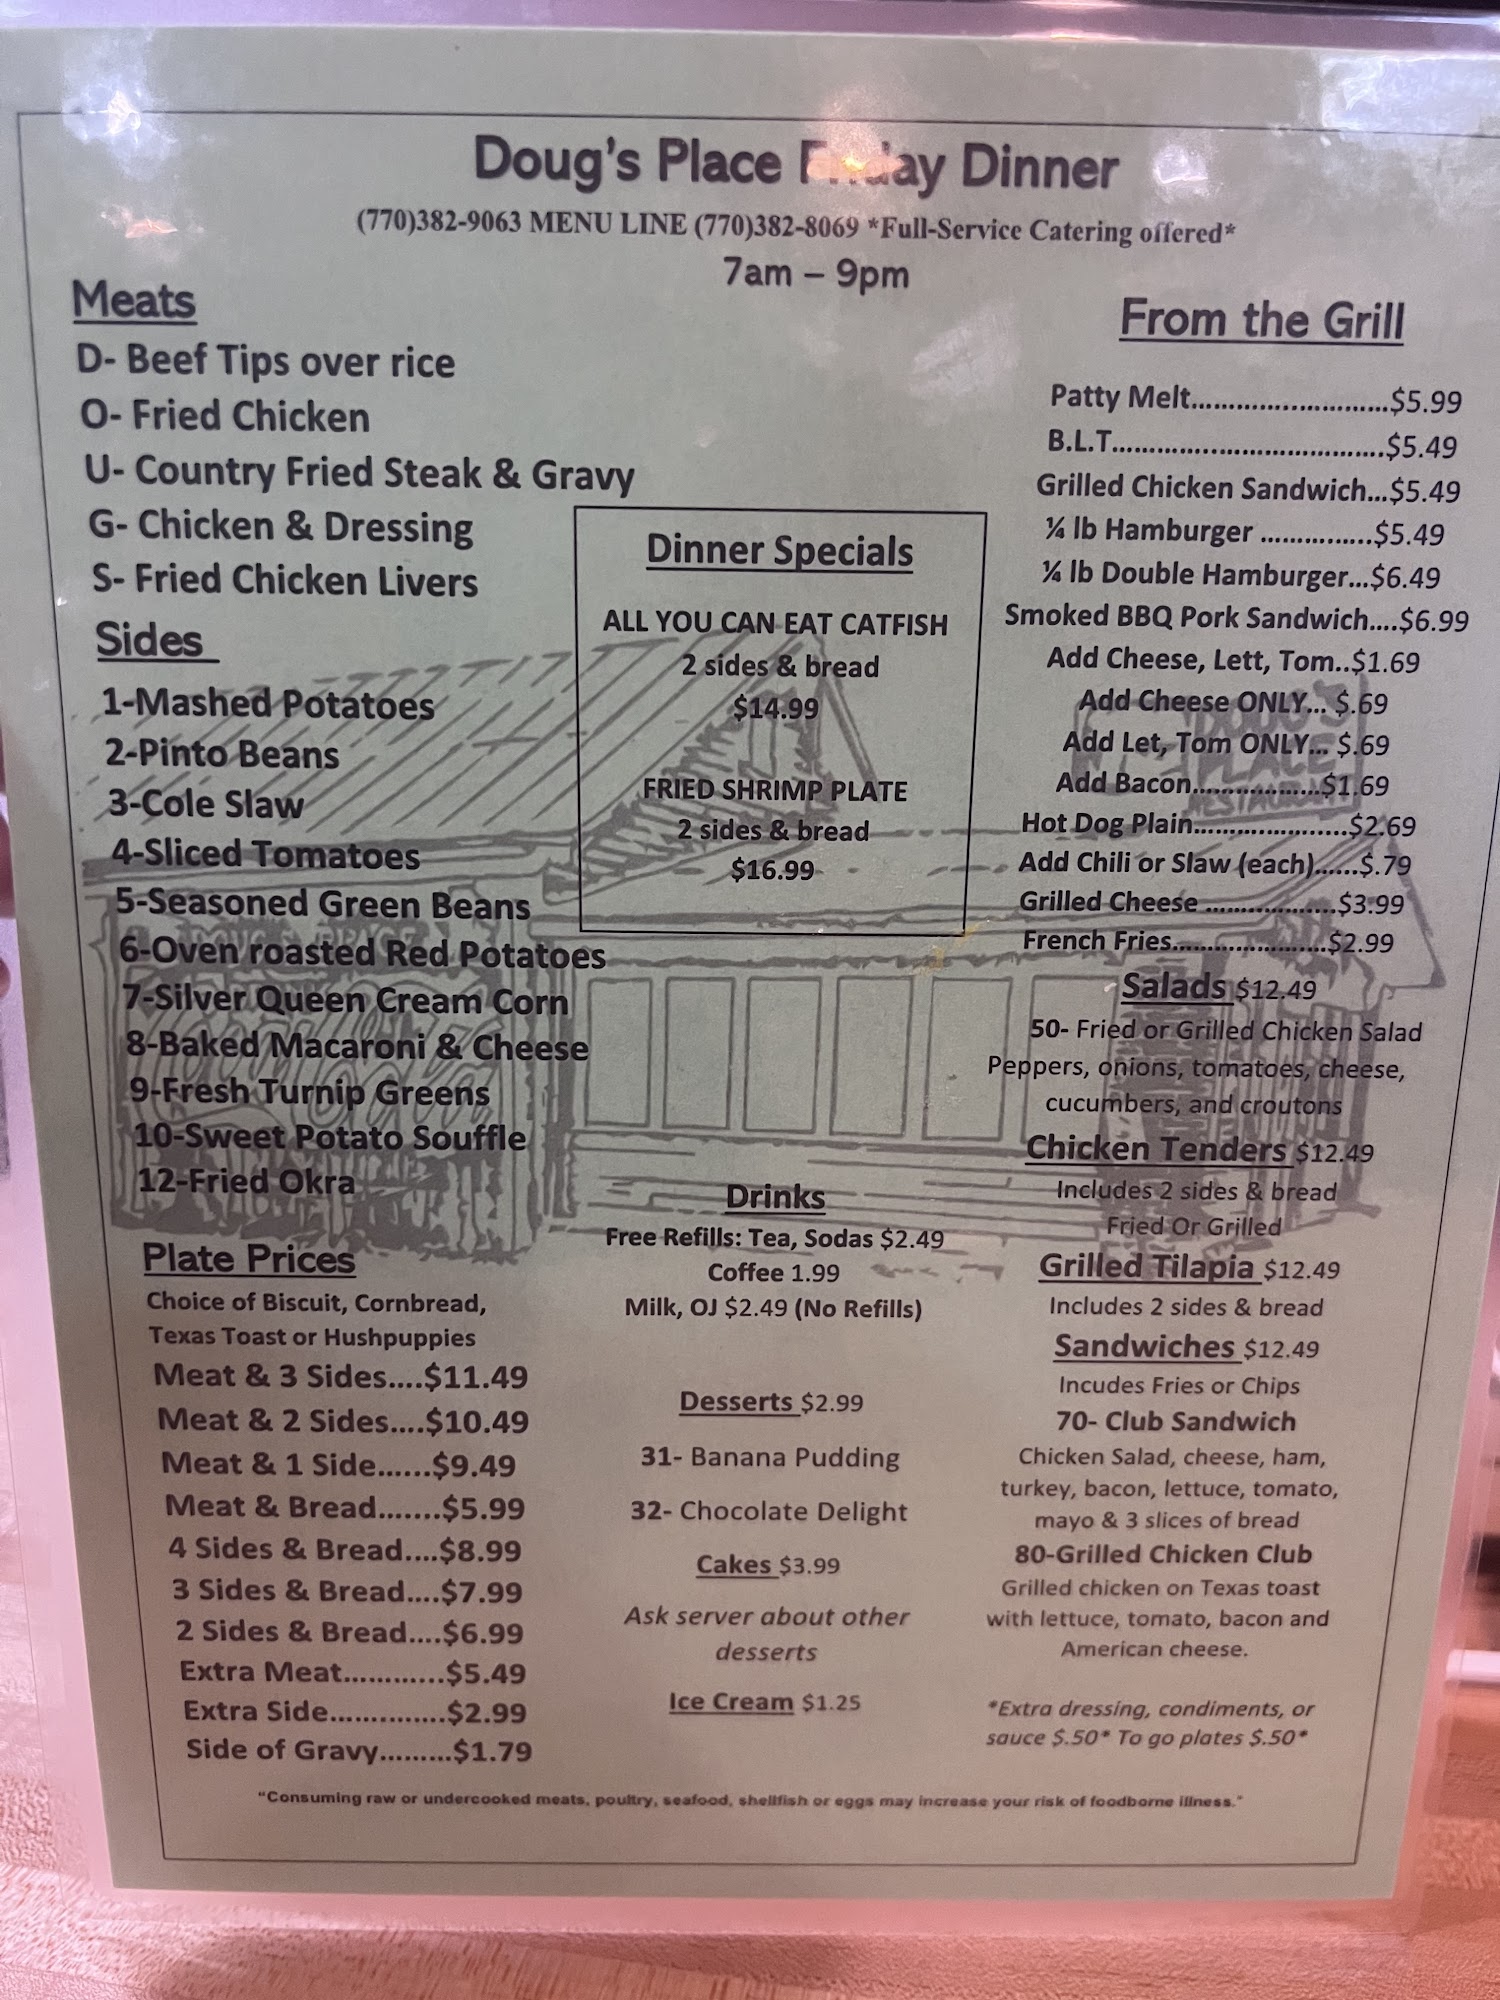 Doug's Place Friday Dinner
(770)382-9063 MENU LINE (770)382-8069 *Full-Service Catering offered*
7am – 9pm
Meats
D- Beef Tips over rice
O- Fried Chicken
U- Country Fried Steak & Gravy
G- Chicken & Dressing
S- Fried Chicken Livers
Sides
1-Mashed Potatoes
2-Pinto Beans
3-Cole Slaw
4-Sliced Tomatoes
5-Seasoned Green Beans
6-Oven roasted Red Potatoes
7-Silver Queen Cream Corn
8-Baked Macaroni & Cheese
9-Fresh Turnip Greens
10-Sweet Potato Souffle
12-Fried Okra
Plate Prices
Choice of Biscuit, Cornbread,
Texas Toast or Hushpuppies
Meat & 3 Sides....$11.49
Meat & 2 Sides....$10.49
Meat & 1 Side......$9.49
Meat & Bread.......$5.99
4 Sides & Bread....$8.99
3 Sides & Bread....$7.99
2 Sides & Bread....$6.99
Extra Meat............$5.49
Extra Side..............$2.99
Side of Gravy.........$1.79
Dinner Specials
ALL YOU CAN EAT CATFISH
2 sides & bread
$14.99
FRIED SHRIMP PLATE
2 sides & bread
$16.99
Drinks
Free Refills: Tea, Sodas $2.49
Coffee 1.99
Milk, OJ $2.49 (No Refills)
Desserts $2.99
31- Banana Pudding
32- Chocolate Delight
Cakes $3.99
Ask server about other
desserts
Ice Cream $1.25
From the Grill
Patty Melt...........................$5.99
B.L.T.....................................$5.49
Grilled Chicken Sandwich...$5.49
¼ lb Hamburger ...............$5.49
¼ lb Double Hamburger...$6.49
Smoked BBQ Pork Sandwich....$6.99
Add Cheese, Lett, Tom..$1.69
Add Cheese ONLY... $.69
Add Let, Tom ONLY... $.69
Add Bacon.................$1.69
Hot Dog Plain.....................$2.69
Add Chili or Slaw (each)......$.79
Grilled Cheese ..................$3.99
French Fries.....................$2.99
Salads $12.49
50- Fried or Grilled Chicken Salad
Peppers, onions, tomatoes, cheese,
cucumbers, and croutons
Chicken Tenders $12.49
Includes 2 sides & bread
Fried Or Grilled
Grilled Tilapia $12.49
Includes 2 sides & bread
Sandwiches $12.49
Incudes Fries or Chips
70- Club Sandwich
Chicken Salad, cheese, ham,
turkey, bacon, lettuce, tomato,
mayo & 3 slices of bread
80-Grilled Chicken Club
Grilled chicken on Texas toast
with lettuce, tomato, bacon and
American cheese.
*Extra dressing, condiments, or
sauce $.50* To go plates $.50*
"Consuming raw or undercooked meats, poultry, seafood, shellfish or eggs may increase your risk of foodborne illness."
DOUG'S
PLACE
RESTAURANT